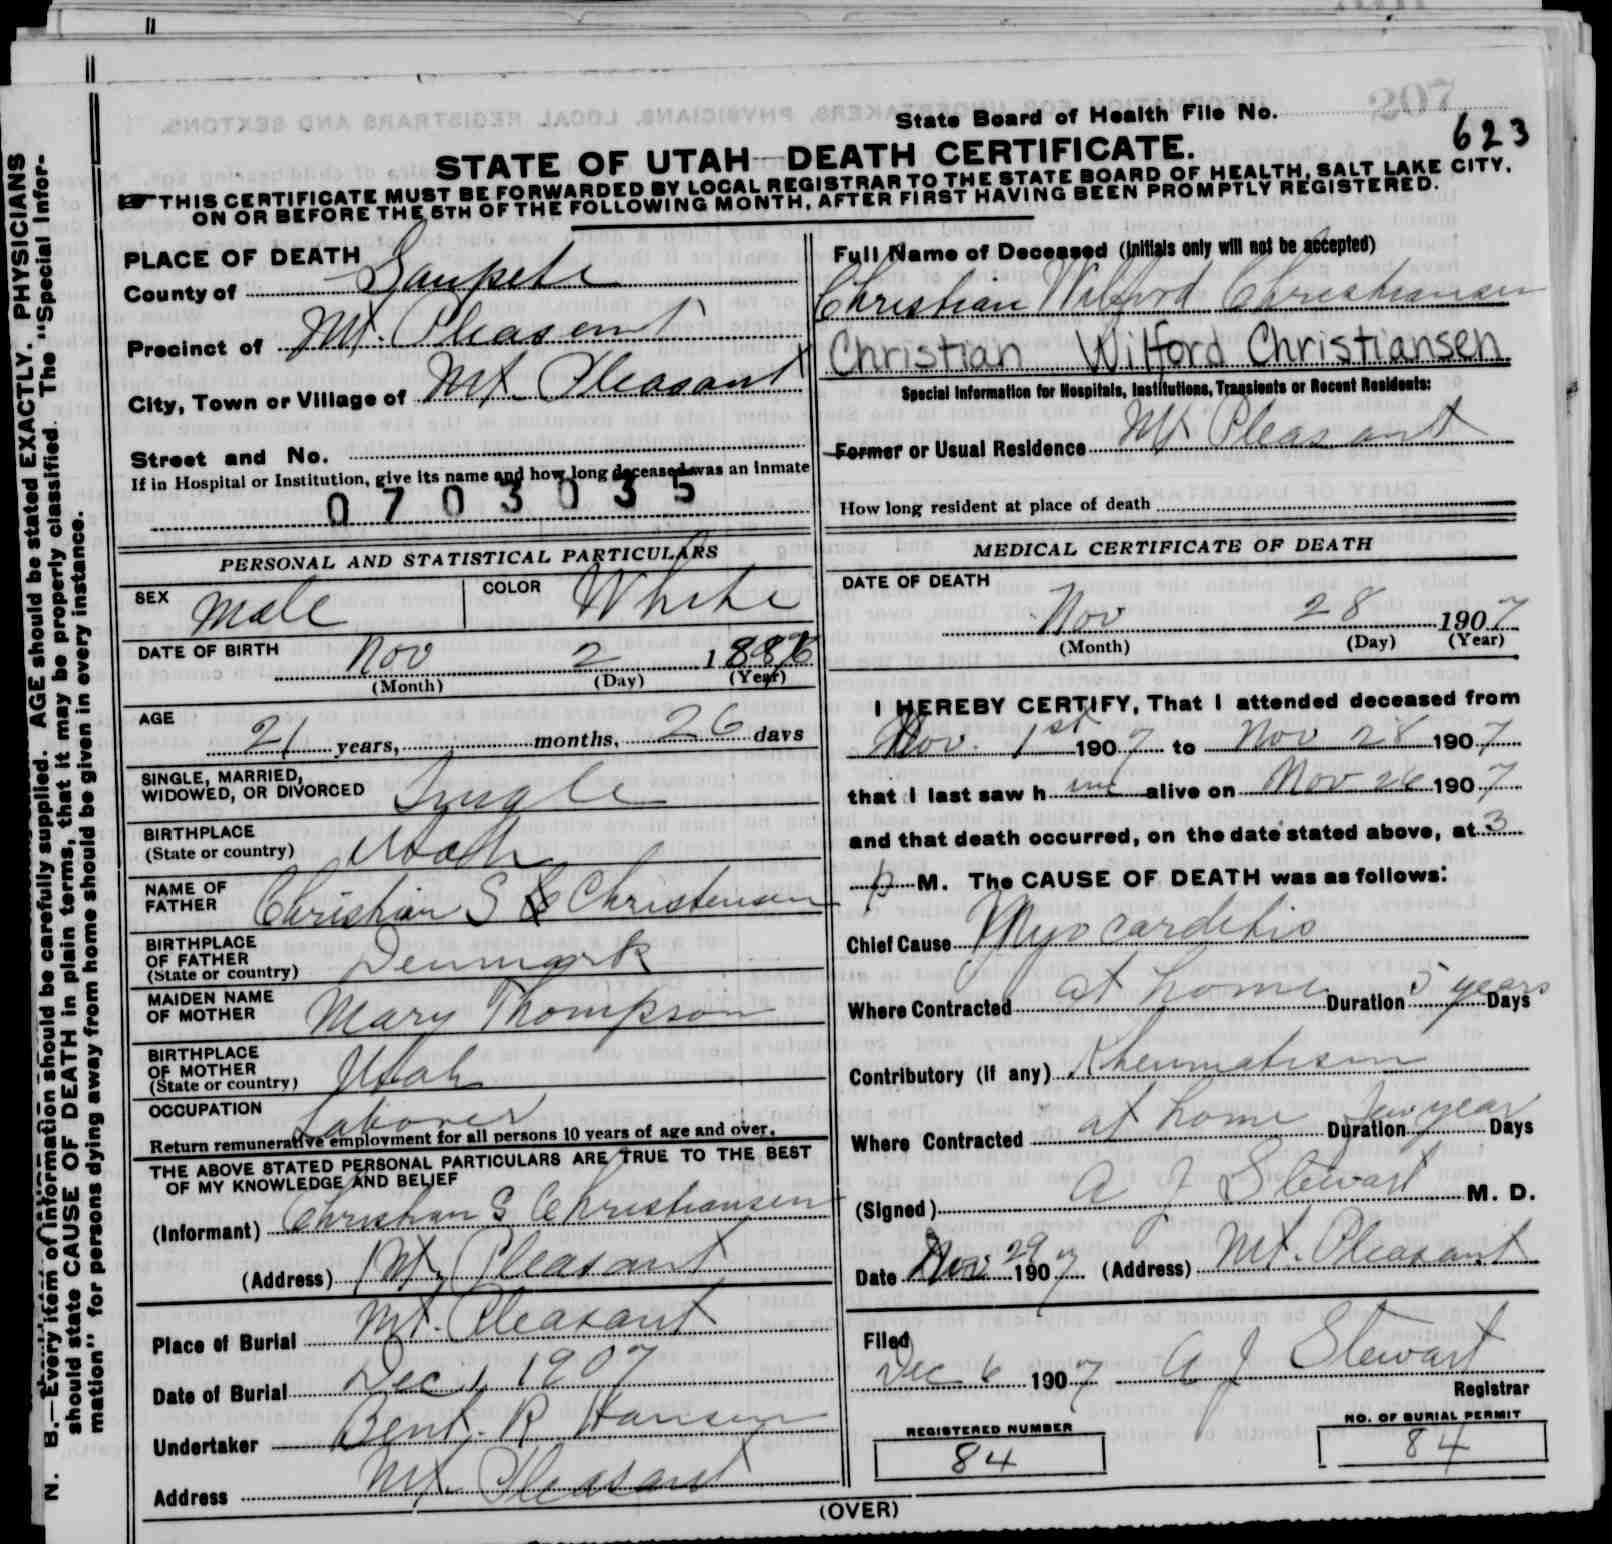 State Board of Health File No. 623
STATE OF UTAH—DEATH CERTIFICATE.
THIS CERTIFICATE MUST BE FORWARDED BY LOCAL REGISTRAR TO THE STATE BOARD OF HEALTH, SALT LAKE CITY,
ON OR BEFORE THE 5TH OF THE FOLLOWING MONTH, AFTER FIRST HAVING BEEN PROMPTLY REGISTERED.
PLACE OF DEATH
County of Sanpete
Precinct of Mt. Pleasant
City, Town or Village of Mt Pleasant
Street and No.
If in Hospital or Institution, give its name and how long deceased was an inmate
0703035
PERSONAL AND STATISTICAL PARTICULARS
SEX Male COLOR White
DATE OF BIRTH Nov 2 1886
(Month) (Day) (Year)
AGE
21 years, months, 26 days
SINGLE, MARRIED,
WIDOWED, OR DIVORCED Single
BIRTHPLACE
(State or country) Utah
NAME OF
FATHER Christian S Christensen
BIRTHPLACE
OF FATHER
(State or country) Denmark
MAIDEN NAME
OF MOTHER Mary Thompson
BIRTHPLACE
OF MOTHER
(State or country) Utah
OCCUPATION Laborer
Return remunerative employment for all persons 10 years of age and over.
THE ABOVE STATED PERSONAL PARTICULARS ARE TRUE TO THE BEST
OF MY KNOWLEDGE AND BELIEF
(Informant) Christian S Christiansen
(Address) Mt Pleasant
Place of Burial Mt. Pleasant
Date of Burial Dec 1 1907
Undertaker Bent. R Hansen
Address Mt. Pleasant
Full Name of Deceased (Initials only will not be accepted)
Christian Wilford Christiansen
Christian Wilford Christiansen
Special Information for Hospitals, Institutions, Transients or Recent Residents:
Former or Usual Residence Mt Pleasant
How long resident at place of death
MEDICAL CERTIFICATE OF DEATH
DATE OF DEATH
Nov 28 1907
(Month) (Day) (Year)
I HEREBY CERTIFY, That I attended deceased from
Nov. 1st 1907 to Nov 28 1907
that I last saw him alive on Nov 26 1907
and that death occurred, on the date stated above, at 3
p M. The CAUSE OF DEATH was as follows:
Chief Cause Myocarditis
Where Contracted at home Duration 5 years Days
Contributory (if any) Rheumatism
Where Contracted at home Duration year Days
(Signed) A J Stewart M. D.
Date Nov 29 1907 (Address) Mt. Pleasant
Filed
Dec 6 1907 A J Stewart
Registrar
REGISTERED NUMBER
84
NO. OF BURIAL PERMIT
84
(OVER)
N. B.—Every item of information should be carefully supplied. AGE should be stated EXACTLY. PHYSICIANS
should state CAUSE OF DEATH in plain terms, that it may be properly classified. The "Special Infor-
mation" for persons dying away from home should be given in every instance.